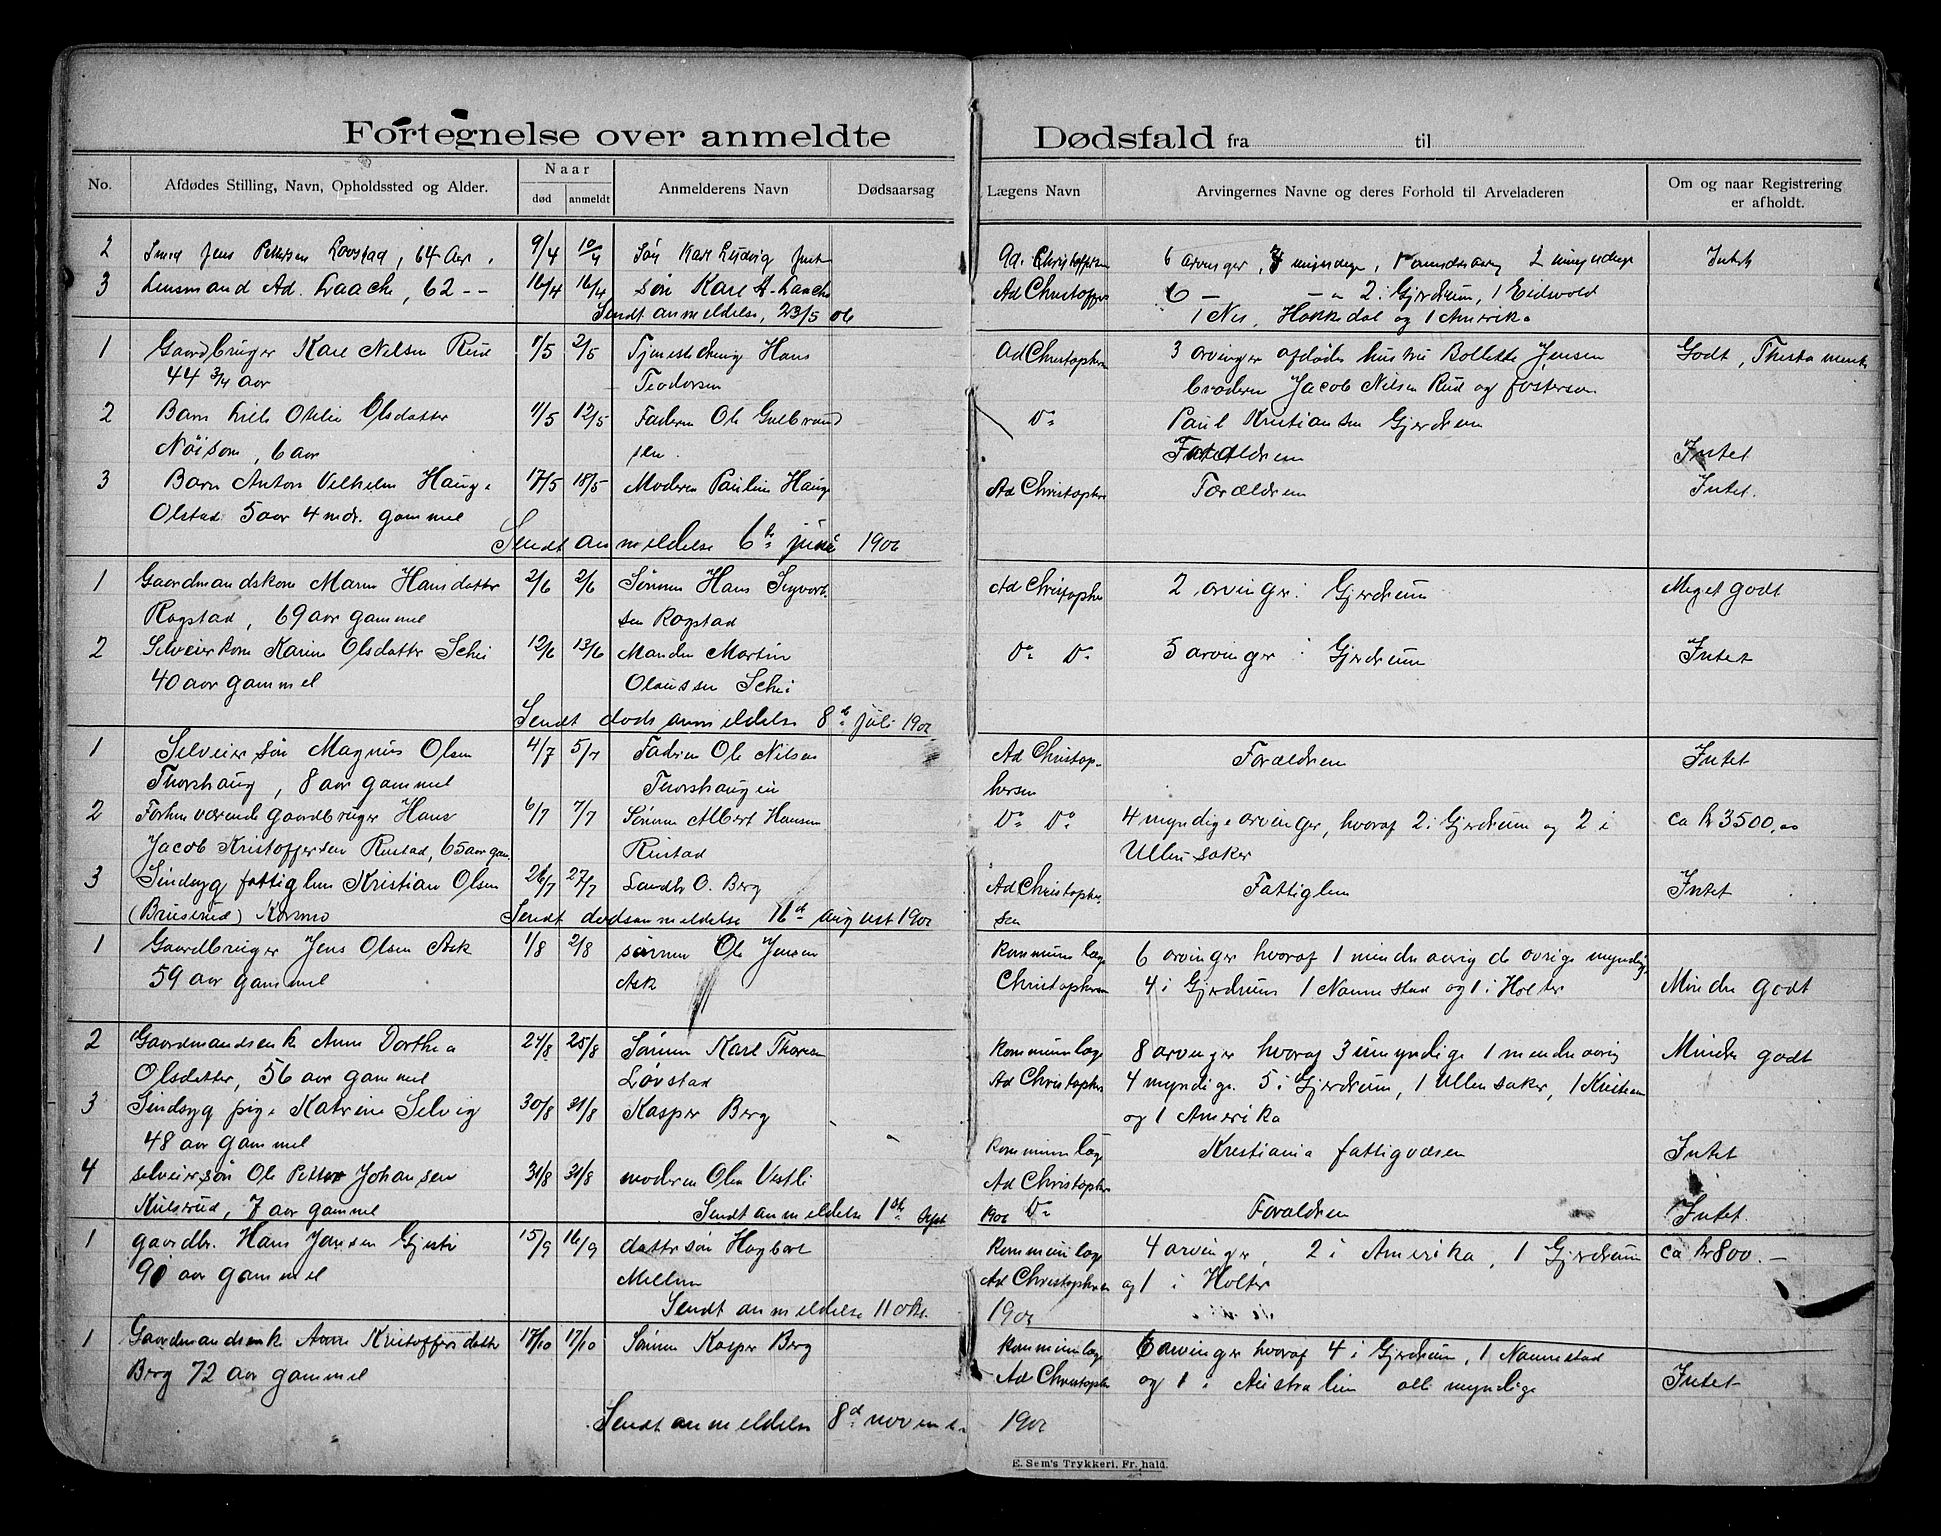 Fortegnelse over anmeldte
Dødsfald fra til
No.
Afdødes Stilling, Navn, Opholdssted og Alder.
Naar
død
anmeldt
Anmelderens Navn
Dødsaarsag
Lægens Navn
Arvingernes Navne og deres Forhold til Arveladeren
Om og naar Registrering
er afholdt.
2 Smed Jens Pettersen Lovstad, 64 Aar, 9/4 10/4 Søn Karl Ludvig Ad. Christophersen 6 arvinger, 2 umyndige Intet
3 Lensmand Ad. Laache, 62 -- 16/4 16/4 Søn Karl A. Laache Ad Christoffers 6 — — " 2 i Gjerdrum, 1 Eidsvold
Sendt anmeldelse, 23/5 06 1 Nes, Hakkedal og 1 Amerika
1 Gaardbruger Karl Nilsen Rud 1/5 2/5 Tjenestedreng Hans Ad Christophersen 3 arvinger afdødes hustru Bollette Jensen Godt, Thestamente
44 3/4 aar Teodorsen broderen Jacob Nilsen Rud og fosterson
2 Barn Lilli Otilie Olsdatter 1/5 12/5 Faderen Ole Gulbrand Do Paul Kristiansen Gjerdrum
Nøisom, 6 aar sen. Foraldren Intet
3 Barn Anton Vilhelm Hauge 17/5 18/5 Moderen Pauline Hauge Ad Christophers Foræeldren Intet.
Olstad 5 aar 4 mdr. gammel
Sendt anmeldelse 6te juni 1906
1 Gaardmandskone Maren Hansdatter 2/6 2/6 Sønnen Hans Syvert Ad Christophers 2 arvinger i Gjerdrum Meget godt
Rogstad, 69 aar gammel sen Rogstad
2 Selveierkone Karine Olsdatter Schei 12/6 13/6 Manden Martin Do Do 5 arvinger i Gjerdrum Intet
40 aar gammel Olaussen Schei
Sendt dødsanmeldelse 8de juli 1906
1 Selveier søn Magnus Olsen 4/7 5/7 Fadren Ole Nilsen Ad Christop- Foraeldren Intet
Thorshaug, 8 aar gammel Thorshaugen hersen
2 Forhenværende gaardbruger Hans 6/7 7/7 Sønnen Albert Hansen Do Do 4 myndige arvinger, hvoraf 2 i Gjerdrum og 2 i ca kr 3500,00
Jacob Kristoffersen Rustad, 65 aar gam. Rustad Ullensaker
3 Sindsyg fattiglem Kristian Olsen 26/7 27/7 Landbr O. Berg Ad Christopher Fattiglem Intet
(Bruserud) Kosmo sen
Sendt dødsanmeldelse 11de august 1906
1 Gaardbruger Jens Olsen Ask 1/8 2/8 sønnen Ole Jensen Kommunelæge 6 arvinger hvoraf 1 mindreaarig de øvrige myndige
59 aar gammel Ask Christophersen 4 i Gjerdrum 1 Nannestad og 1 i Holter Mindre godt
2 Gaardmandsenke Anne Dorthea 24/8 25/8 Sønnen Karl Thorsen Kommunelæge 8 arvinger hvoraf 3 umyndige 1 mendreaarig Mindre godt
Olsdatter, 56 aar gammel Løvstad Ad Christophers 4 myndige. 5 i Gjerdrum, 1 Ullensaker, 1 Kristiania
og 1 Amerika
3 Sindsyg pige Katrine Selvig 30/8 31/8 Kasper Berg Kommunelæge Kristiania fattigvæsen Intet
48 aar gammel Ad Christophers
4 selveiersøn Ole Petter Johansen 31/8 31/8 moderen Olea Vestli Do Foraldren Intet.
Kulsrud, 7 aar gammel
Sendt anmeldelse 1ste Sept 1906
1 gaardbr. Hans Jensen Gjestri 15/9 16/9 dattersøn Hagbart Kommunelæge 4 arvinger, 2 i Amerika, 1 Gjerdrum ca kr 800.—
90 aar gammel Mellum Ad Christophersen og 1 i Holter
Sendt anmeldelse 11 okt. 1906
1 Gaardmandsenk Anne Kristoffersdatter 17/10 17/10 Sønnen Kasper Berg Kommunelæge 6 arvinger hvoraf 4 i Gjerdrum, 1 Nannestad
Berg 72 aar gammel Ad Christophers og 1 i Australien alle myndige Intet
Sendt anmeldelse 8de november 1906
E. Sem's Trykkeri. Fr.hald.